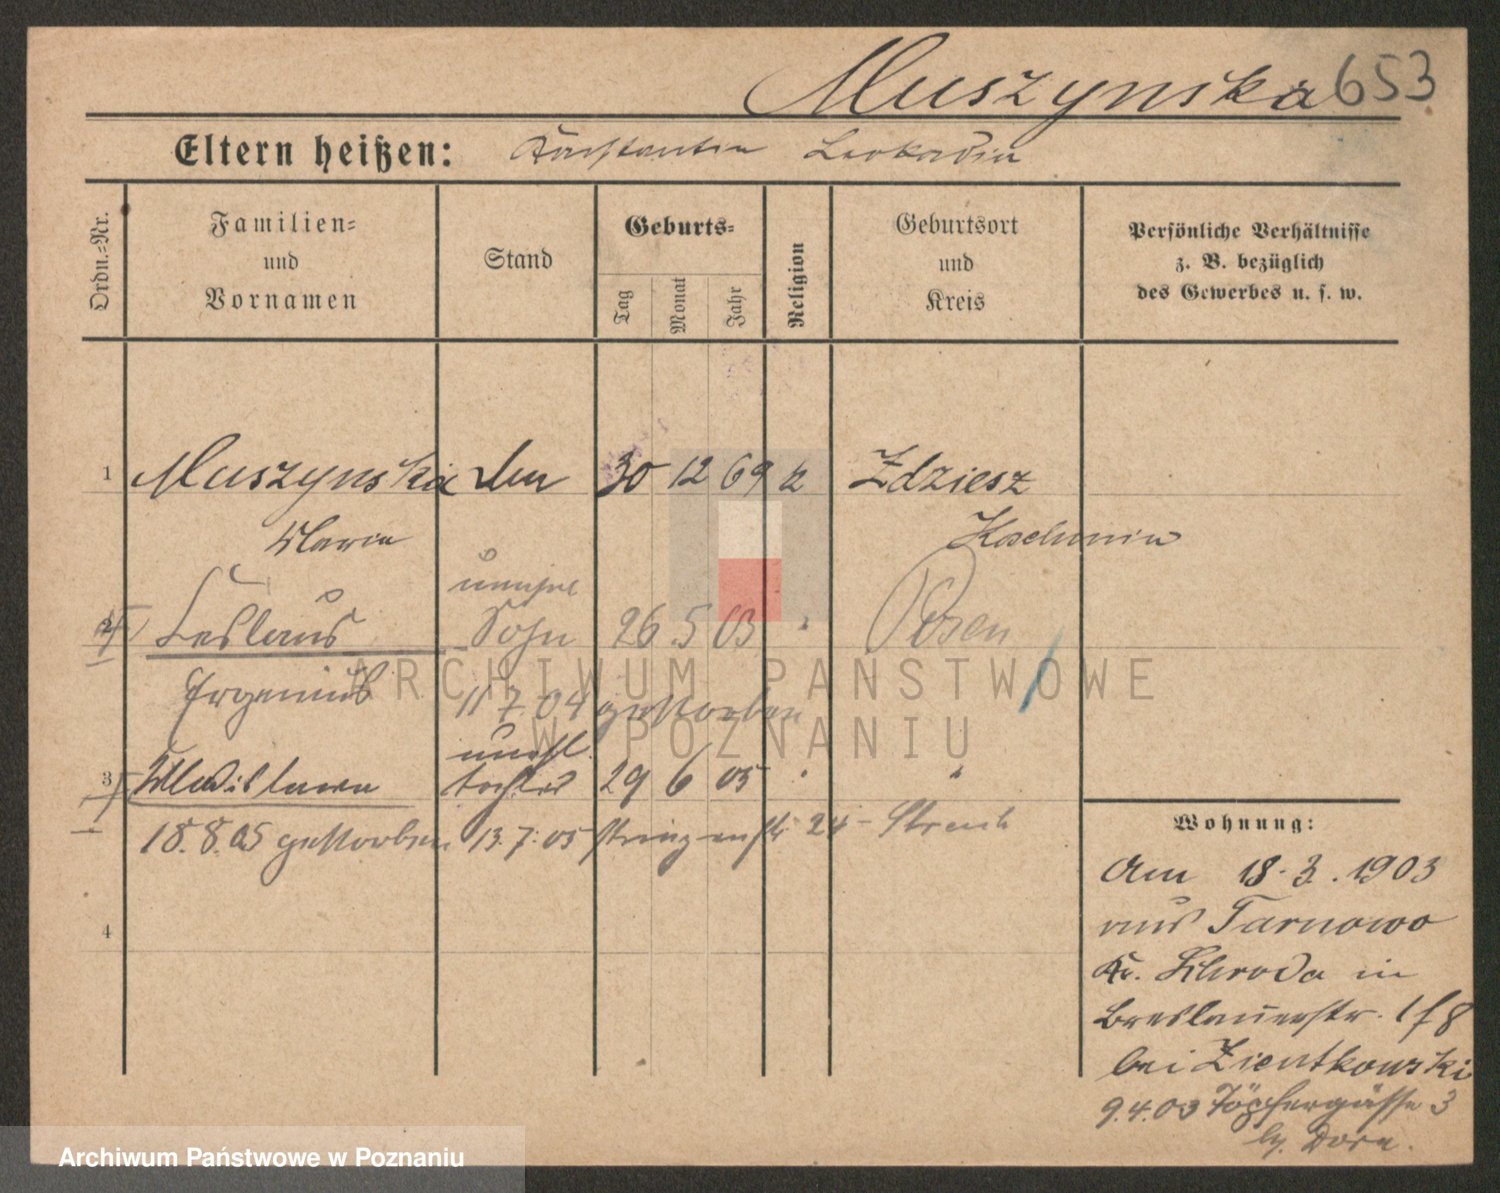 Muszynska 653
Eltern heißen: Konstantin Leokadia
Ordn.-Nr.
Familien-
und
Vornamen
Stand
Geburts-
Tag
Monat
Jahr
Religion
Geburtsort
und
Kreis
Persönliche Verhältnisse
z. B. bezüglich
des Gewerbes u. s. w.
1 Muszynska 30 12 69 k Zdziesz
Maria Koschmin
unehel
2 Ceslaus Sohn 26 5 03 " Posen
Eugenius 11 7. 04 gestorben
unehl.
3 Wladislawa Tochter 29 6 05 " "
18. 8. 05 gestorben 13. 7. 05 24
4
Wohnung:
Am 18. 3. 1903
aus Tarnowo
Kr. Schroda in
Breslauerstr. 1/8
bei Zientkowski
9.4.03 Töpfergasse 3
by. Dorn.
ARCHIWUM PAŃSTWOWE
W POZNANIU
Archiwum Państwowe w Poznaniu